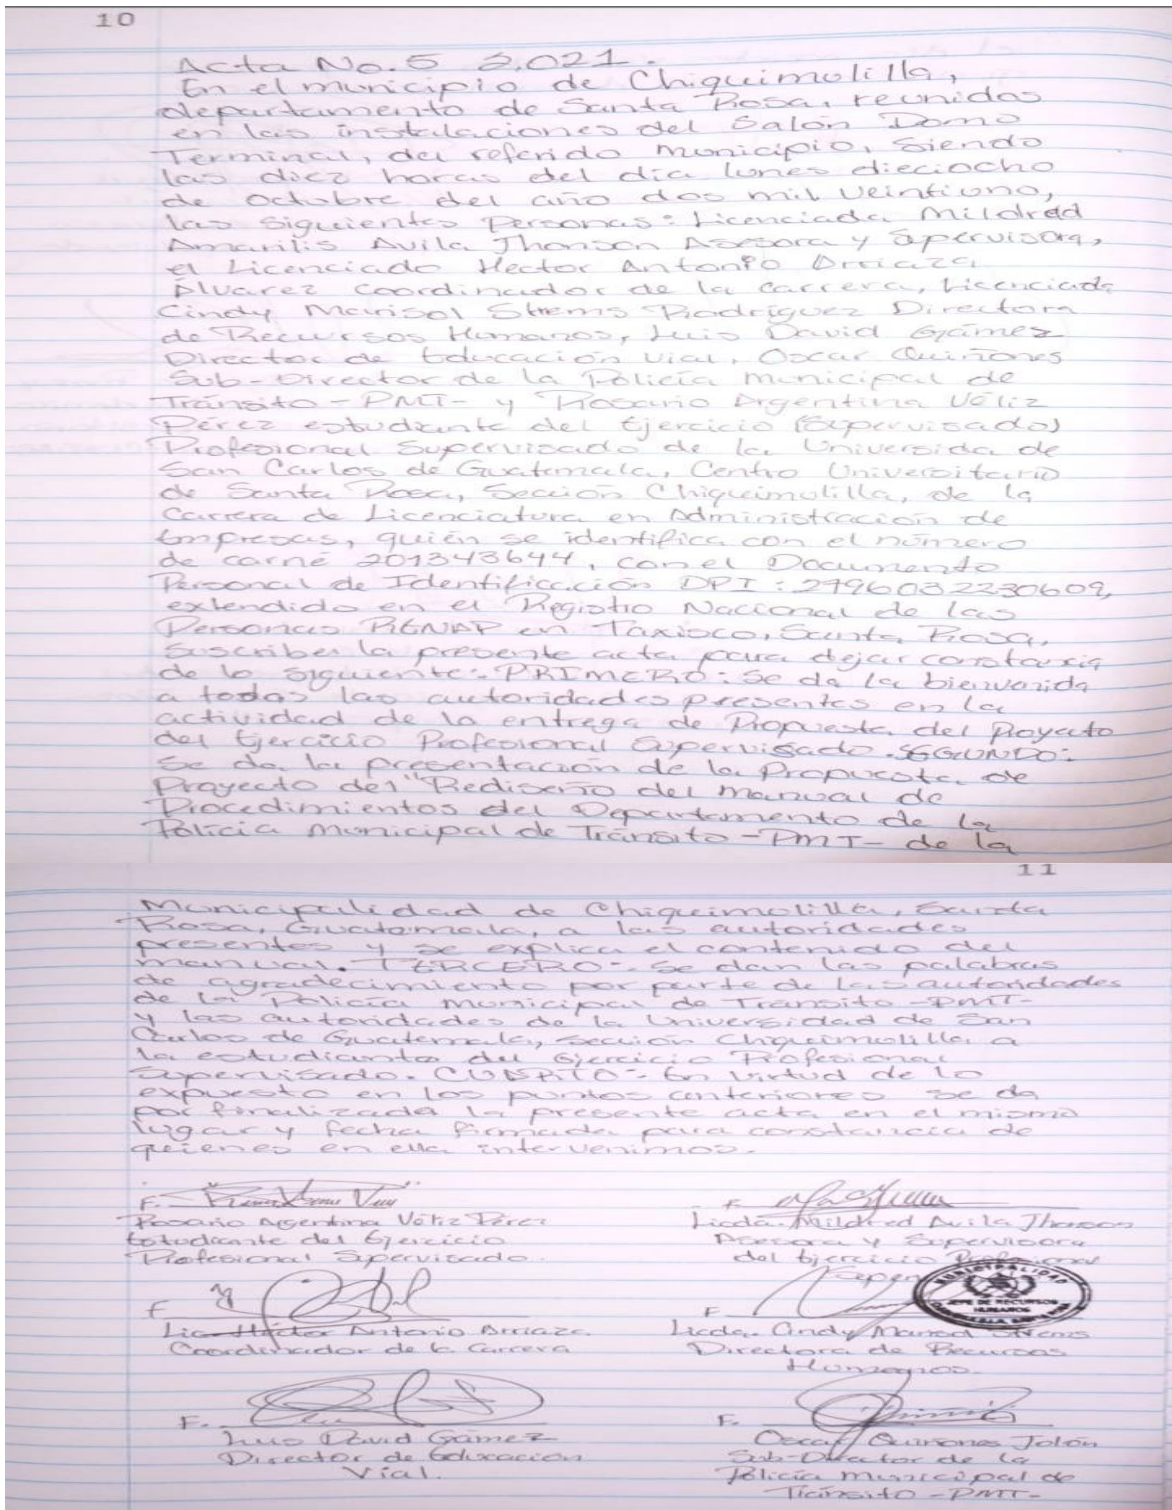 10
Acta No. 5 2,021.
En el municipio de Chiquimulilla,
departamento de Santa Rosa, reunidos
en las instalaciones del Salón Domo
Terminal, del referido municipio, siendo
las diez horas del día lunes dieciocho
de octubre del año dos mil veintiuno,
las siguientes personas: Licenciada Mildred
Amarilis Avila Jhonson Asesora y Supervisora,
el Licenciado Hector Antonio Arriaza
Álvarez coordinador de la carrera, Licenciada
Cindy Marisol Strems Rodríguez Directora
de Recursos Humanos, Luis David Gámez
Director de Educación Vial, Oscar Quiñones
Sub-Director de la Policía Municipal de
Tránsito -PMT- y Rosario Argentina Véliz
Pérez estudiante del Ejercicio (Supervisado)
Profesional Supervisado de la Universida de
San Carlos de Guatemala, Centro Universitario
de Santa Rosa, Sección Chiquimulilla, de la
Carrera de Licenciatura en Administración de
Empresas, quién se identifica con el número
de carné 201343644, con el Documento
Personal de Identificación DPI: 2796032230609,
extendido en el Registro Nacional de las
Personas RENAP en Taxisco, Santa Rosa,
suscribe la presente acta para dejar constancia
de lo siguiente: PRIMERO: Se da la bienvenida
a todas las autoridades presentes en la
actividad de la entrega de Propuesta del Proyecto
del Ejercicio Profesional Supervisado. SEGUNDO:
Se da la presentación de la Propuesta de
Proyecto del "Rediseño del Manual de
Procedimientos del Departamento de la
Policía Municipal de Tránsito -PMT- de la
11
Municipalidad de Chiquimulilla, Santa
Rosa, Guatemala, a las autoridades
presentes y se explica el contenido del
manual. TERCERO: Se dan las palabras
de agradecimiento por parte de las autoridades
de la Policía Municipal de Transito -PMT-
y las autoridades de la Universidad de San
Carlos de Guatemala, sección Chiquimulilla a
la estudiante del Ejercicio Profesional
Supervisado. CUARTO: En virtud de lo
expuesto en los puntos anteriores se da
por finalizada la presente acta en el mismo
lugar y fecha firmada para constancia de
quienes en ella intervenimos.
F. F.
Rosario Argentina Véliz Pérez Licda. Mildred Avila Jhonson
Estudiante del Ejercicio Asesora y Supervisora
Profesional Supervisado. del Ejercicio Profesional
F. F.
Lic. Héctor Antonio Arriaza Licda. Cindy Marisol Strems
Coordinador de la Carrera Directora de Recursos
Humanos.
MUNICIPALIDAD
JEFE DE RECURSOS
HUMANOS
F. F.
Luis David Gámez Oscar Quiñones Jolón
Director de Educación Sub-Director de la
Vial. Policía Municipal de
Tránsito -PMT-